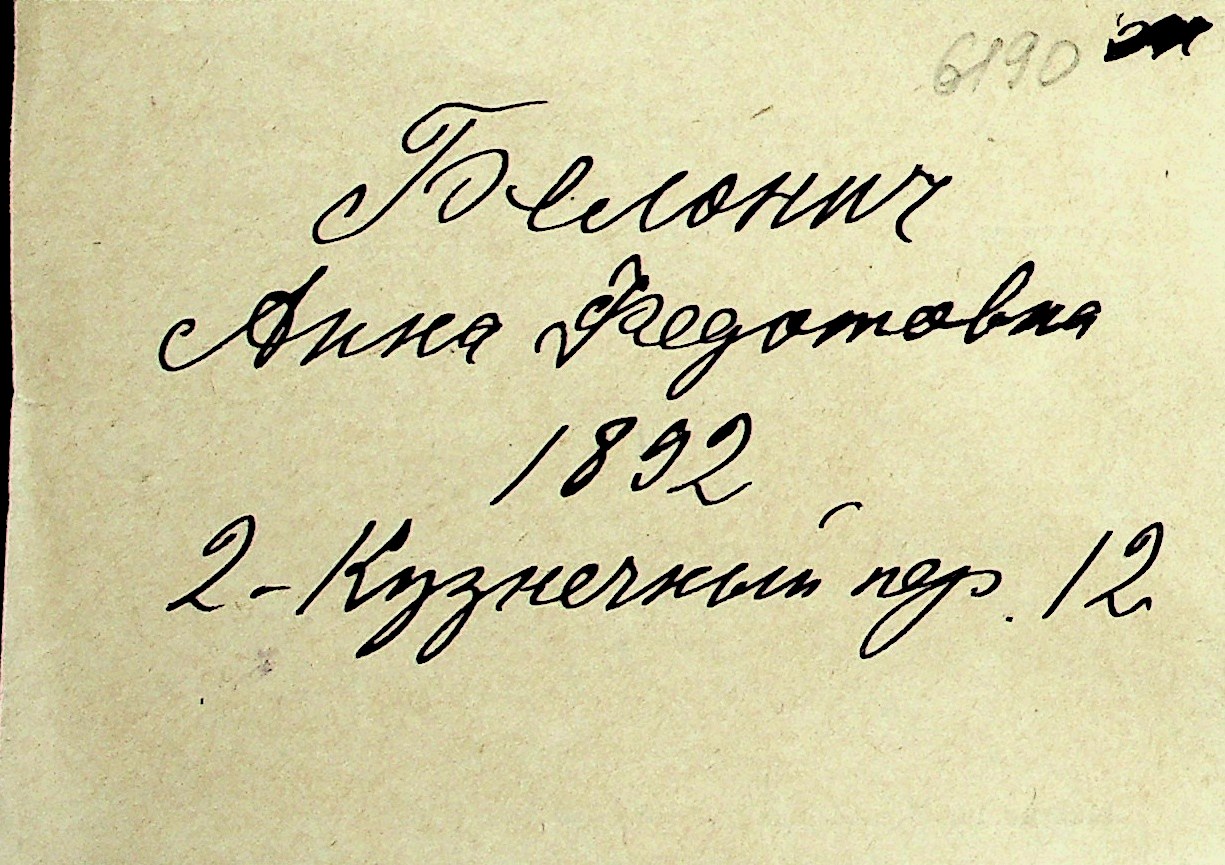 6190
Белонич
Анна Федотовна
1892
2-Кузнечный пер. 12